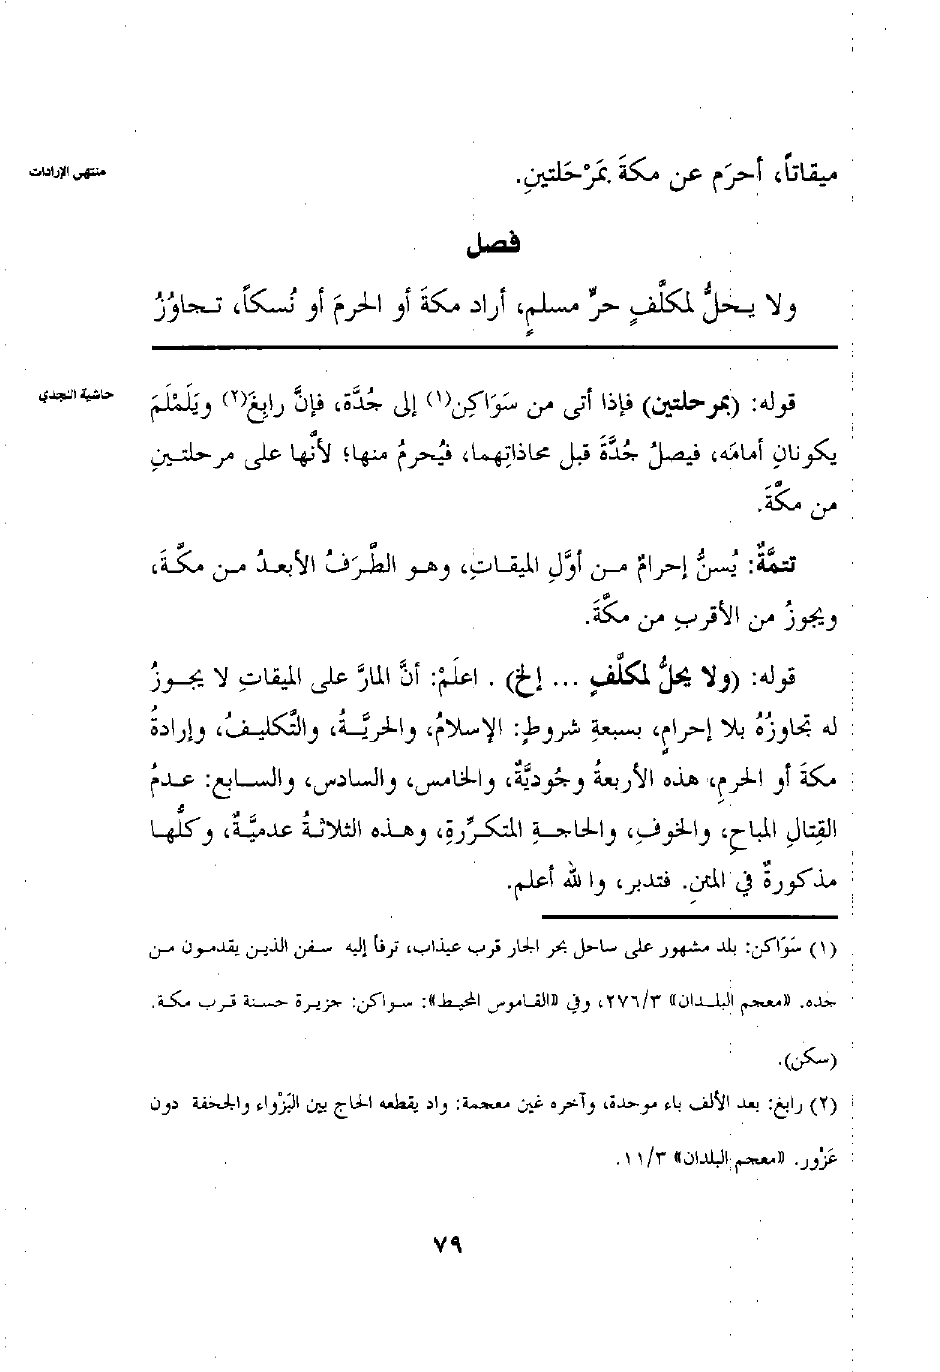 منتهى الإرادات
ميقاتاً، أحرَم عن مكةَ بمَرْحَلتينِ.
فصل
ولا يـحلُّ لمكلَّفٍ حرٍّ مسلمٍ، أراد مكةَ أو الحرمَ أو نُسكاً، تـجاوُزُ
حاشية النجدي
قوله: (بمرحلتين) فإذا أتى من سَوَاكِن(١) إلى جُدَّة، فإنَّ رابِغَ(٢) ويَلَمْلَمَ
يكونانِ أمامَه، فيصلُ جُدَّةَ قبل محاذاتِهما، فيُحرمُ منها؛ لأنَّها على مرحلتـينِ
من مكَّةَ.
تتمَّةٌ: يُسنُّ إحرامٌ مـن أوَّلِ الميقـاتِ، وهـو الطَّرَفُ الأبعـدُ مـن مكَّـةَ،
ويجوزُ من الأقربِ من مكَّةَ.
قوله: (ولا يحلُّ لمكلَّفٍ ... إلخ) . اعلَمْ: أنَّ المارَّ على الميقاتِ لا يجـوزُ
له تجاوزُهُ بلا إحرامٍ، بسبعةِ شروطٍ: الإسلامُ، والحريَّـةُ، والتَّكليـفُ، وإرادةُ
مكةَ أو الحرمِ، هذه الأربعةُ وجُوديَّةٌ، والخامس، والسادس، والسـابع: عـدمُ
القِتالِ المباحِ، والخوفِ، والحاجـةِ المتكـرِّرةِ، وهـذه الثلاثـةُ عدميَّـةٌ، وكلُّهـا
مذكورةٌ في المتنِ. فتدبر، والله أعلم.
(١) سَوَاكن: بلد مشهور على ساحل بحر الجار قرب عيذاب، ترفأ إليه سـفن الذيـن يقدمـون مـن
جده. «معجم البلـدان» ٢٧٦/٣، وفي «القـاموس المحيـط»: سـواكن: جزيـرة حسـنة قـرب مكـة.
(سكن).
(٢) رابغ: بعد الألف باء موحدة، وآخره غين معجمة: واد يقطعه الحاج بين البَزْواء والجحفة دون
عَزْور. «معجم البلدان» ١١/٣.
٧٩